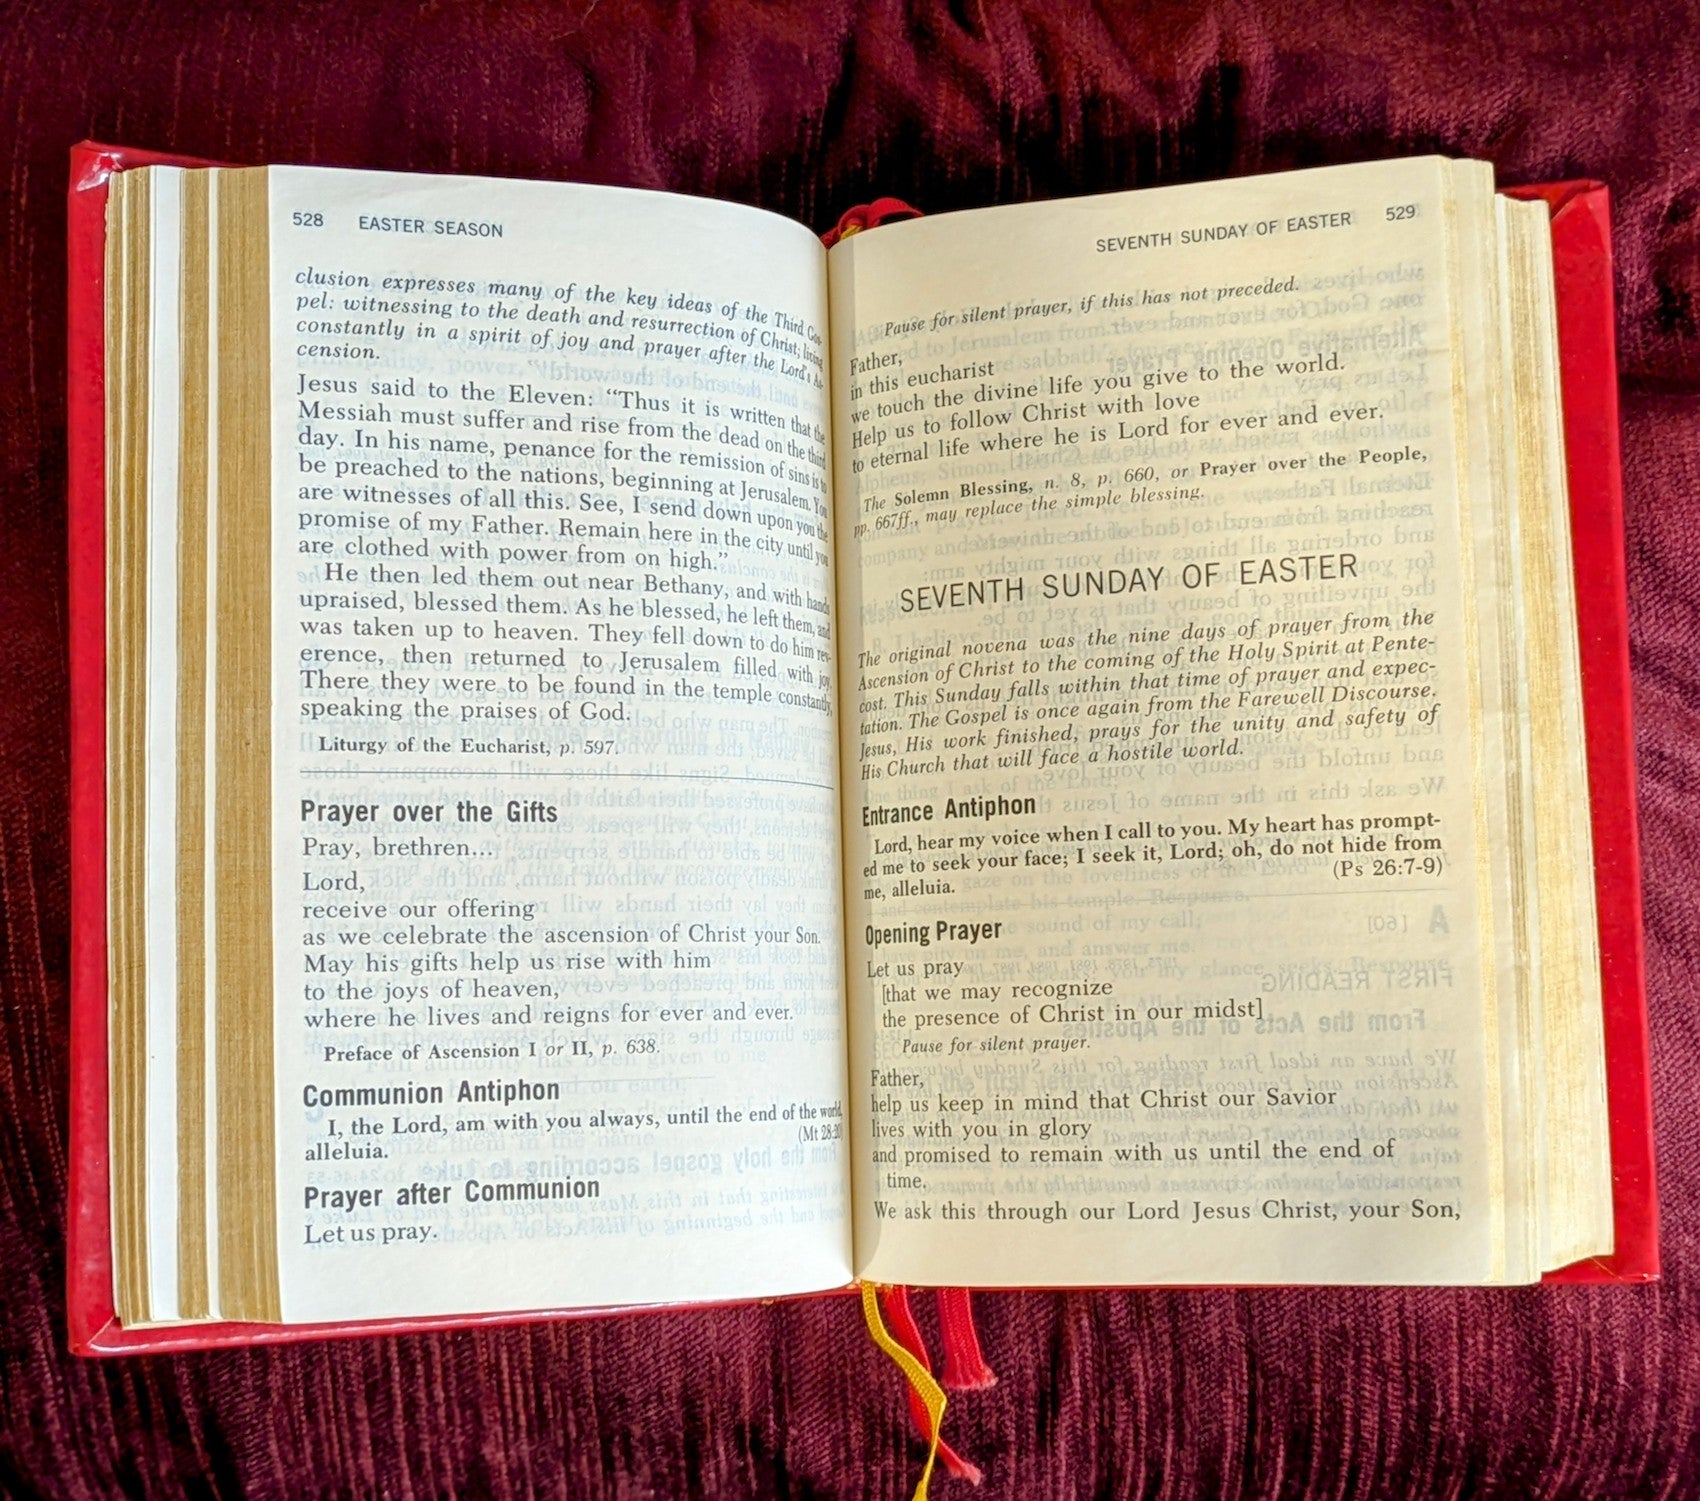 528 EASTER SEASON
clusion expresses many of the key ideas of the Third Gos-
pel: witnessing to the death and resurrection of Christ; living
constantly in a spirit of joy and prayer after the Lord's As-
cension.
Jesus said to the Eleven: “Thus it is written that the
Messiah must suffer and rise from the dead on the third
day. In his name, penance for the remission of sins is to
be preached to the nations, beginning at Jerusalem. You
are witnesses of all this. See, I send down upon you the
promise of my Father. Remain here in the city until you
are clothed with power from on high.”
He then led them out near Bethany, and with hands
upraised, blessed them. As he blessed, he left them, and
was taken up to heaven. They fell down to do him rev-
erence, then returned to Jerusalem filled with joy.
There they were to be found in the temple constantly,
speaking the praises of God.
Liturgy of the Eucharist, p. 597.
Prayer over the Gifts
Pray, brethren...
Lord,
receive our offering
as we celebrate the ascension of Christ your Son.
May his gifts help us rise with him
to the joys of heaven,
where he lives and reigns for ever and ever.
Preface of Ascension I or II, p. 638.
Communion Antiphon
I, the Lord, am with you always, until the end of the world,
alleluia. (Mt 28:20)
Prayer after Communion
Let us pray.
SEVENTH SUNDAY OF EASTER 529
Pause for silent prayer, if this has not preceded.
Father,
in this eucharist
we touch the divine life you give to the world.
Help us to follow Christ with love
to eternal life where he is Lord for ever and ever.
The Solemn Blessing, n. 8, p. 660, or Prayer over the People,
pp. 667ff., may replace the simple blessing.
SEVENTH SUNDAY OF EASTER
The original novena was the nine days of prayer from the
Ascension of Christ to the coming of the Holy Spirit at Pente-
cost. This Sunday falls within that time of prayer and expec-
tation. The Gospel is once again from the Farewell Discourse.
Jesus, His work finished, prays for the unity and safety of
His Church that will face a hostile world.
Entrance Antiphon
Lord, hear my voice when I call to you. My heart has prompt-
ed me to seek your face; I seek it, Lord; oh, do not hide from
me, alleluia. (Ps 26:7-9)
Opening Prayer
Let us pray
[that we may recognize
the presence of Christ in our midst]
Pause for silent prayer.
Father,
help us keep in mind that Christ our Savior
lives with you in glory
and promised to remain with us until the end of
time.
We ask this through our Lord Jesus Christ, your Son,